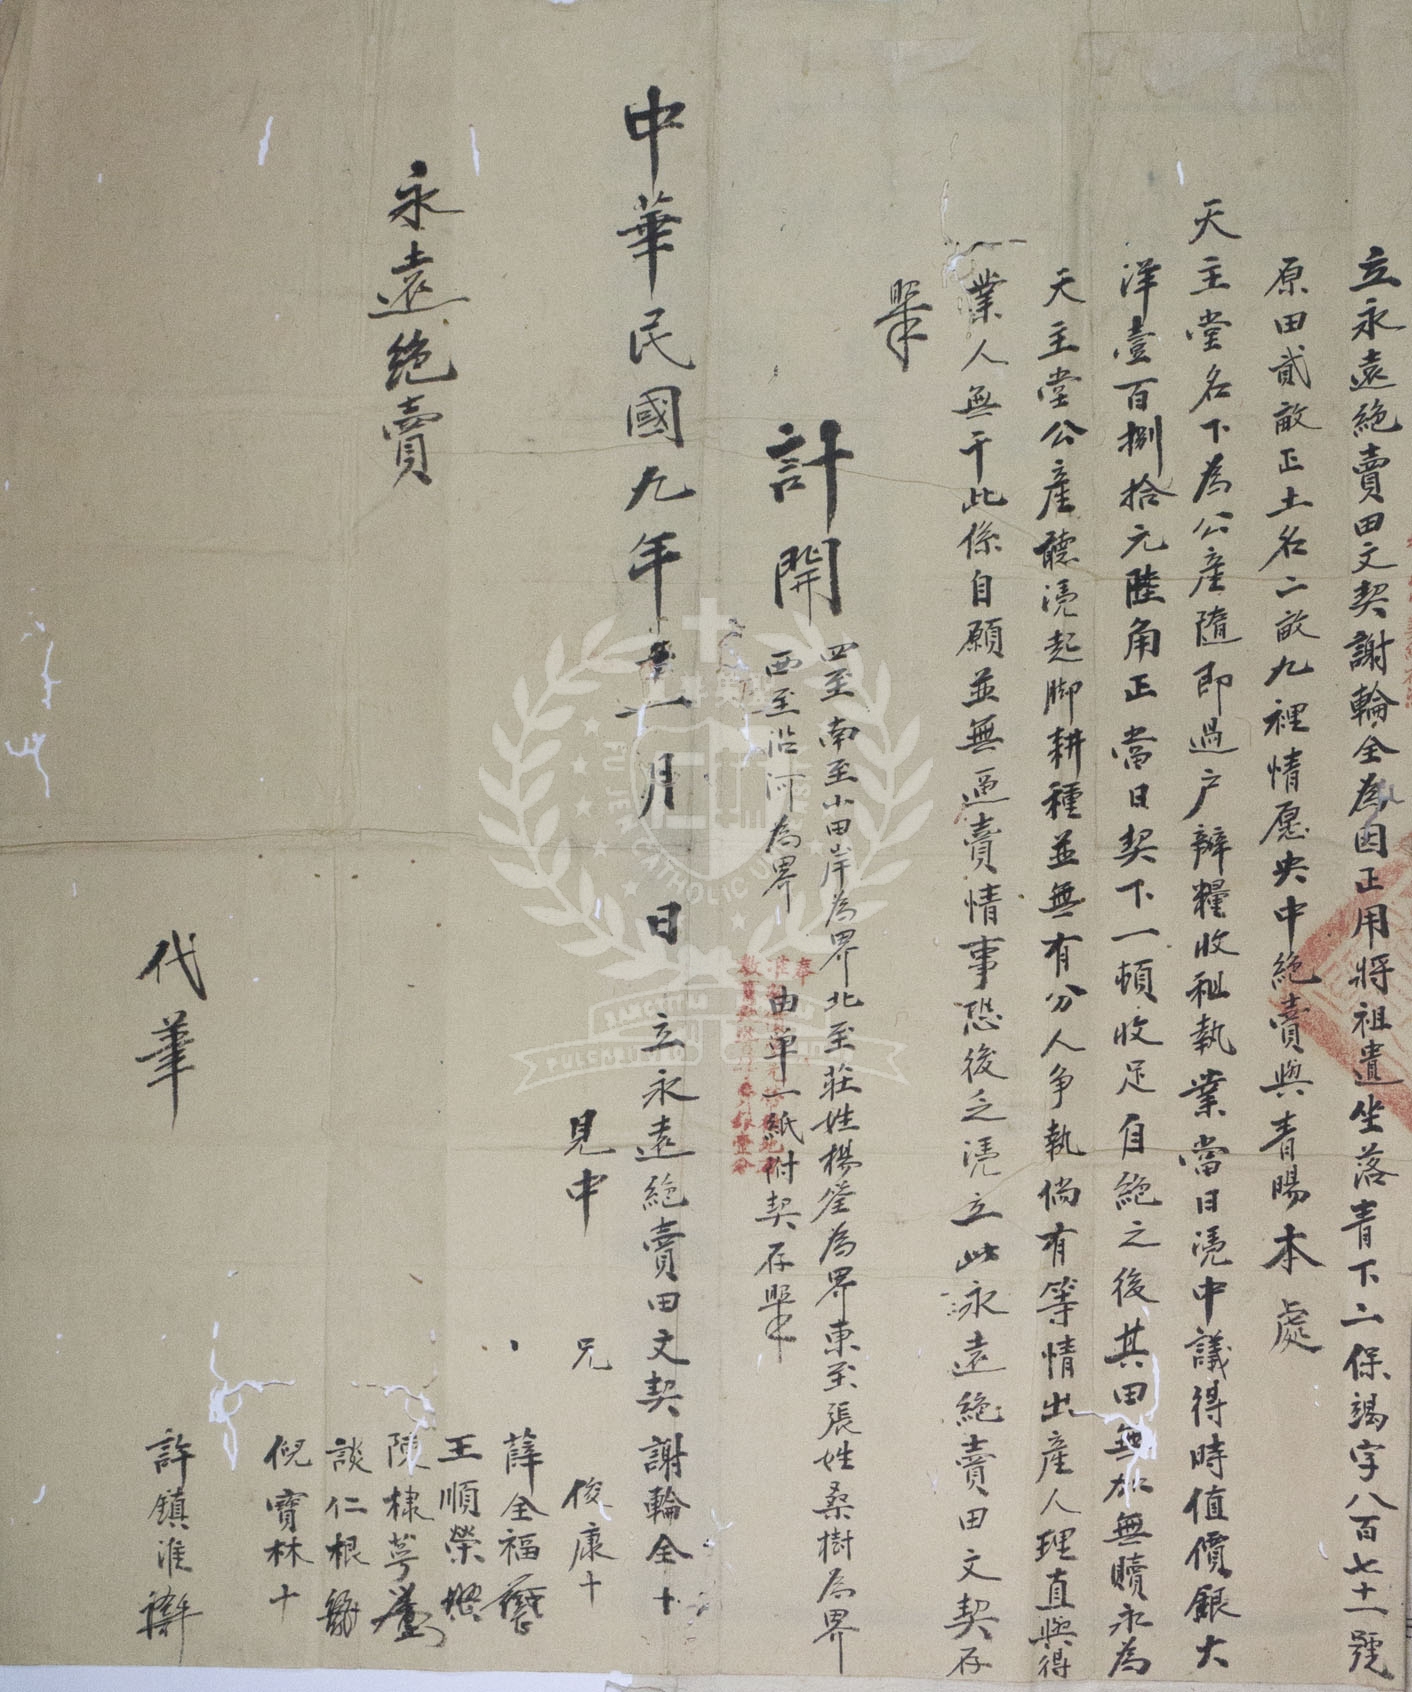 立永遠絕賣田文契謝輪全為因正用將祖遺坐落青下二保竭字八百七十一號
原田貳畝正土名二畝九裡情愿央中絕賣與青暘本處
天主堂名下為公產隨即過户辦糧收租執業當日凴中議得時值價銀大
洋壹百捌拾元陸角正當日契下一頓收足自絕之後其田無加無贖永為
天主堂公產聽凴起腳耕種並無有分人争執倘有等情出產人理直與得
業人無干此係自願並無逼賣情事恐後乏凴立此永遠絕賣田文契存
照
計開
四至南至小田岸為界北至莊姓楊登為界東至張姓桑樹為界
西至沿河為界 由单一紙附契存照
中華民國九年 一月 日 立永遠絕賣田文契謝輪全十
見中 兄 俊康十
薛全福
王順榮
陳棣萼
談仁根
倪寶林十
永遠絕賣
代筆 許鎮淮
FU JEN CATHOLIC UNIVERSITY